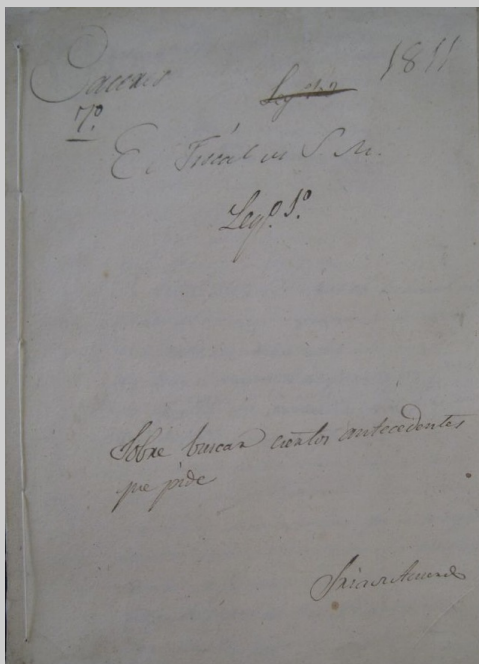 Caceres 1811
7.º
El Fiscal de S. M.
Leg.º 1.º
Sobre buscar ciertos antecedentes
que pide